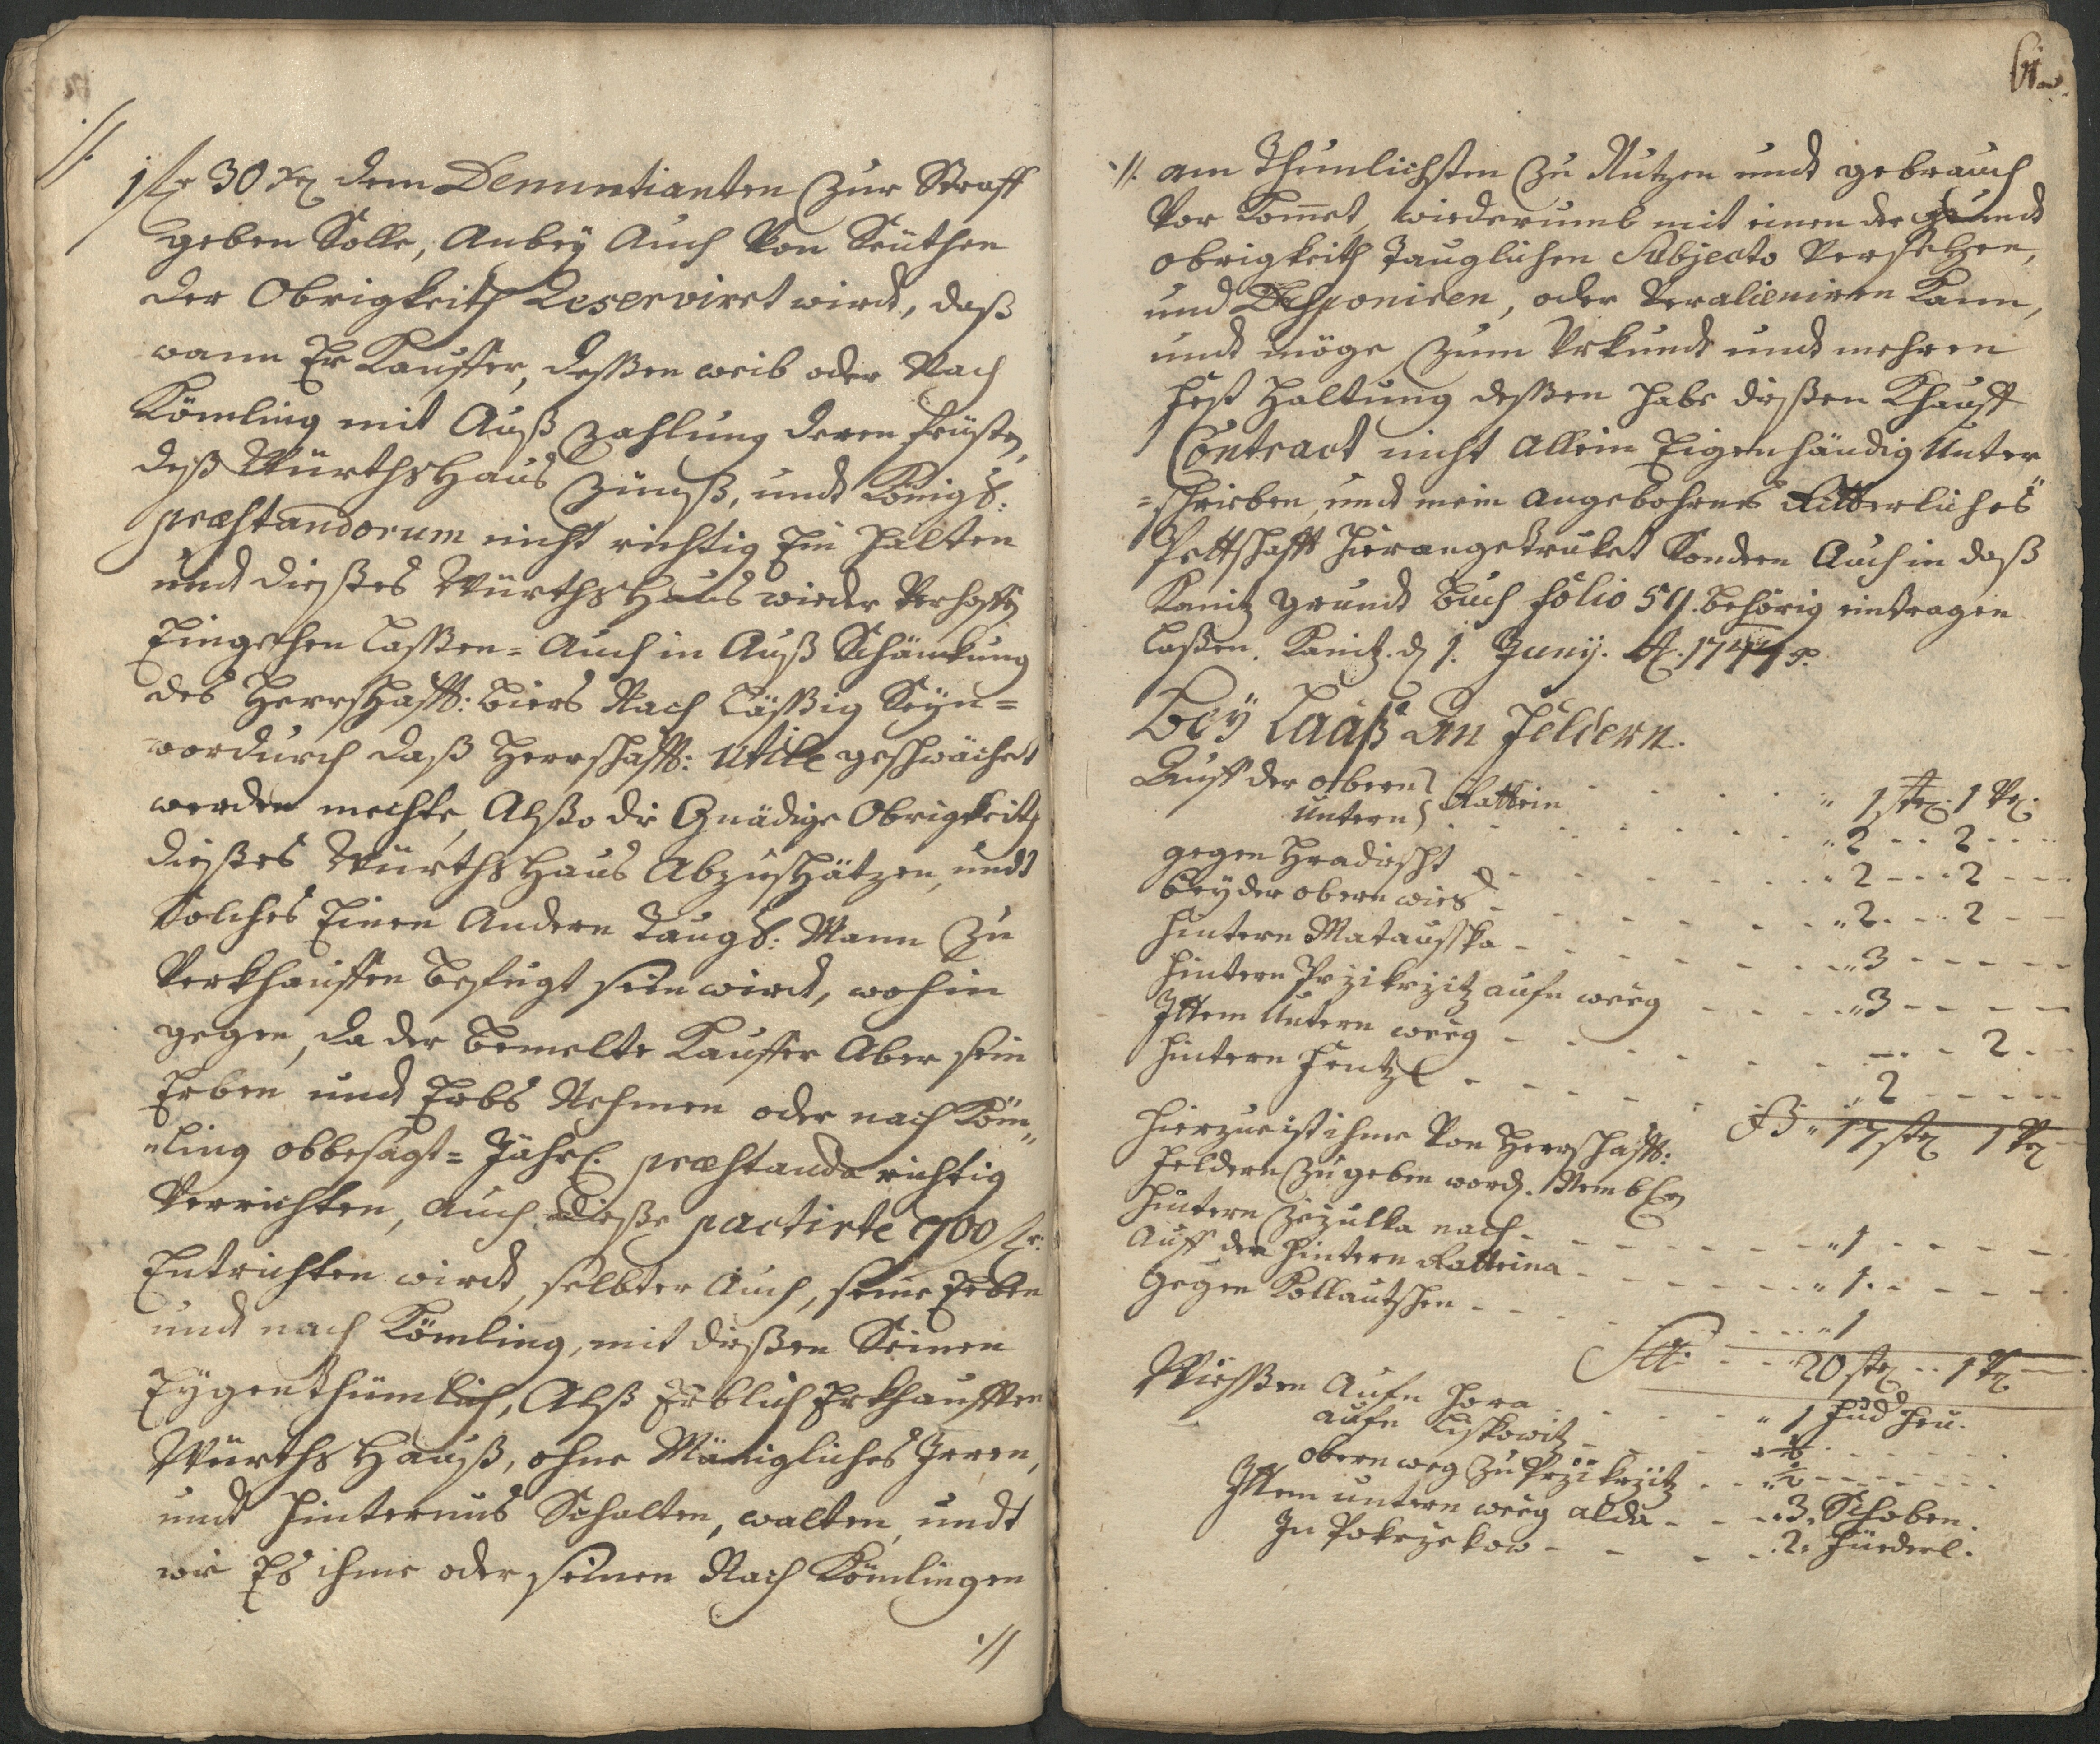 ·//·
1 fl 30 xr dem Denuntianten zur Straff
geben Solle, Anbey Auch Von Seithen
der Obrigkeith Reserviret wird, daß
wann Er Kauffer, deßen weib oder Nach
Kömling mit Auß zahlung deren fristen,
deß Würthshaus Zünß, und Königl:
præstandorum nicht richtig Ein halten
und dießes Würthshaus wieder Verhoffen
Eingehen laßen= Auch in Auß Schänkung
des Herrschafftl: biers Nach läßig Seyn=
wordurch daß Herrschafftl: Utile geschwächet
werden mechte, Alßo die Gnädige Obrigkeith
dießes Würthshaus Abzuschätzen, undt
Solches Einen Andern Taugl: Mann Zu
Verkhauffen befugt sein wird, wohin
gegen, da der bemelte Kauffer Aber sein
Erben und Erbs Nehmen oder nach Köm„
„ling obbesagt= Jährl. præstanda richtig
Verrichten, auch dieße pactirte 700 fl:
Entrichten wird, selbter Auch, seine Erben
und nach Kömling, mit dießen Seinen
Eygenthümlich, Alß Erblich Erkhaufften
Würthshauß, ohne Mänigliches Irren,
und hinternus Schalten, walten, undt
wie Es ihme oder seinen Nach Kömlingen
·//
·//· am Thunlichsten zu Nutzen undt gebrauch
Vor Kommet, wiederumb mit einen der grundt
obrigkeith Tauglichen Subjecto Versetzen,
und Dishponiren, oder Veralieniren kann,
undt möge, zum Urkundt undt mehren
Fest Haltung deßen habe dießen Khauff
Contract nicht Allein Eigenhändig Unter
=schrieben, und mein angebohrnes Ritterliches
Pettschafft hierangetruket Sondern Auch in daß
Kanitz grundt buch folio 59. behörig eintragen
laßen. Kanitz d 1. Junij. A. 1747
Bey Laaß an Feldern.
Auff der obern } Rattein - - - „ 1 1
untern } - - - „ 2 - - 2 - -
gegen Hradischt - - - „ 2 - - 2 - -
bey der obern wies - - - „ 2 - - 2 - -
hintern Matauschka - - - „ 3 - - -
hintern Przikrzitz aufn weeg - - - „ 3 - - -
Ittem Untern weeg - - - - - 2 - -
hintern Hentzl - - - „ 2 - - -
17 1
Hierzue ist ihme Von Herrschafftl:
feldern Zu geben word.
hintern Zezulka nach - - - „ 1 - - -
Auff der hintern Ratteina - - - „ 1 - - -
Gegen Kollautschen - - - „ 1
20 1
Wießen Aufn Hora - - - „ 1 Fud Heu.
aufn Liskowitz - - - „ ½ - - -
obern weg zu Przikrzitz - - „ ½ - - -
Ittem untern weeg alda - - „ 3. Schoben.
In Pokrzekow - - - 2. Füederl.